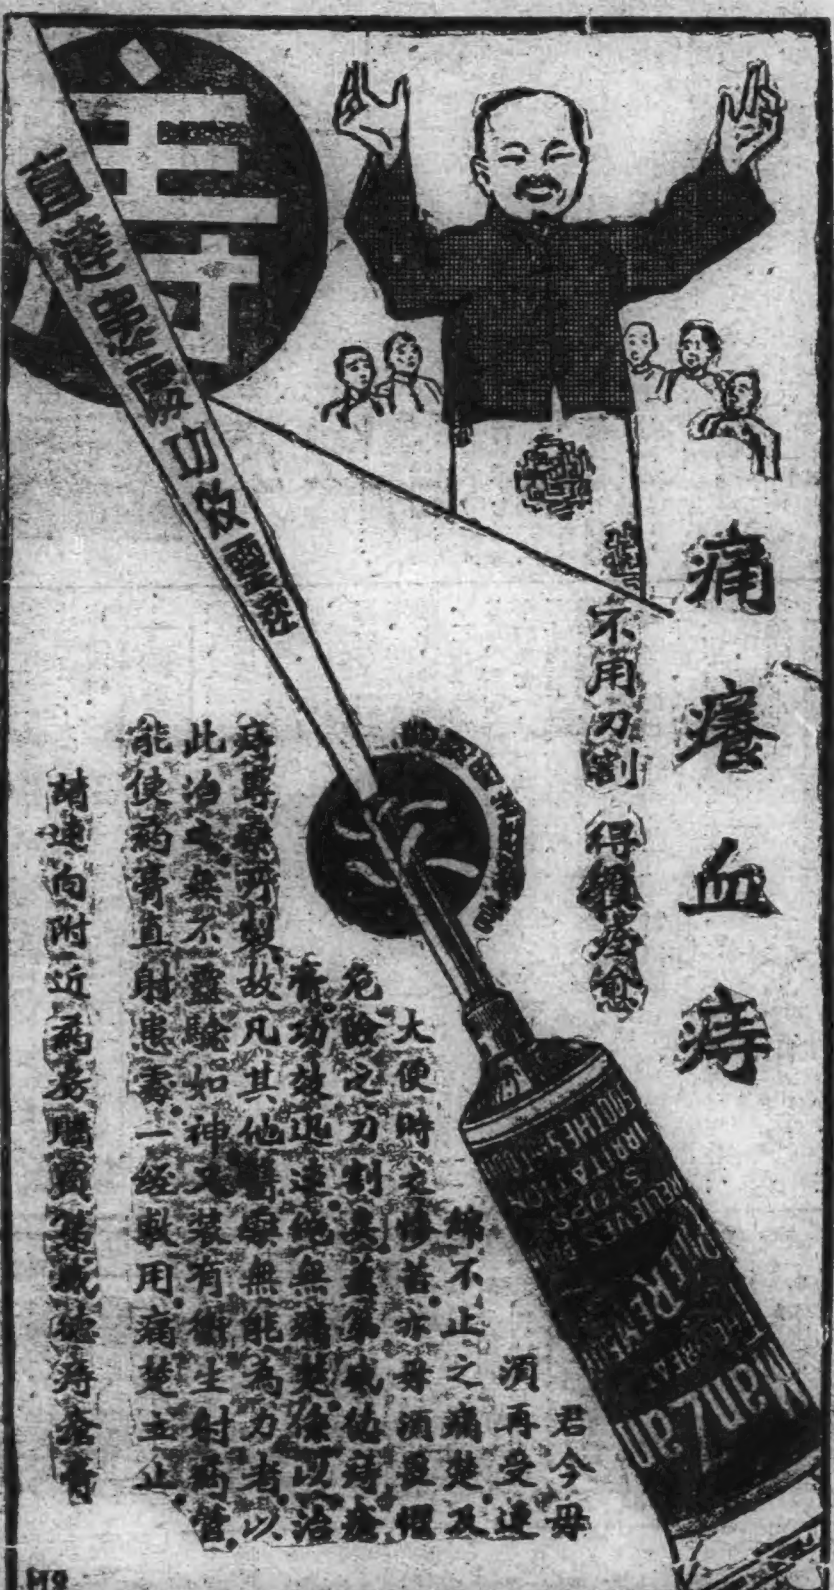 壽
痛癢血痔
不用刀割
得獲痊愈
君今毋
須再受連
綿不止之痛楚及
大便時之慘苦亦毋須畏懼
危險之刀割矣蓋第威德痔瘡
膏功效迅速絕無痛楚係以治
痔專藥所製故凡其他醫藥無能為力者以
此治之無不靈驗如神又裝有衛生射藥管
能使藥膏直射患處一經敷用痛楚立止
請速向附近藥房購買第威德痔瘡膏
ManZan
THE GREAT
PILE REMEDY
RELIEVES PAIN
STOPS
IRRITATION